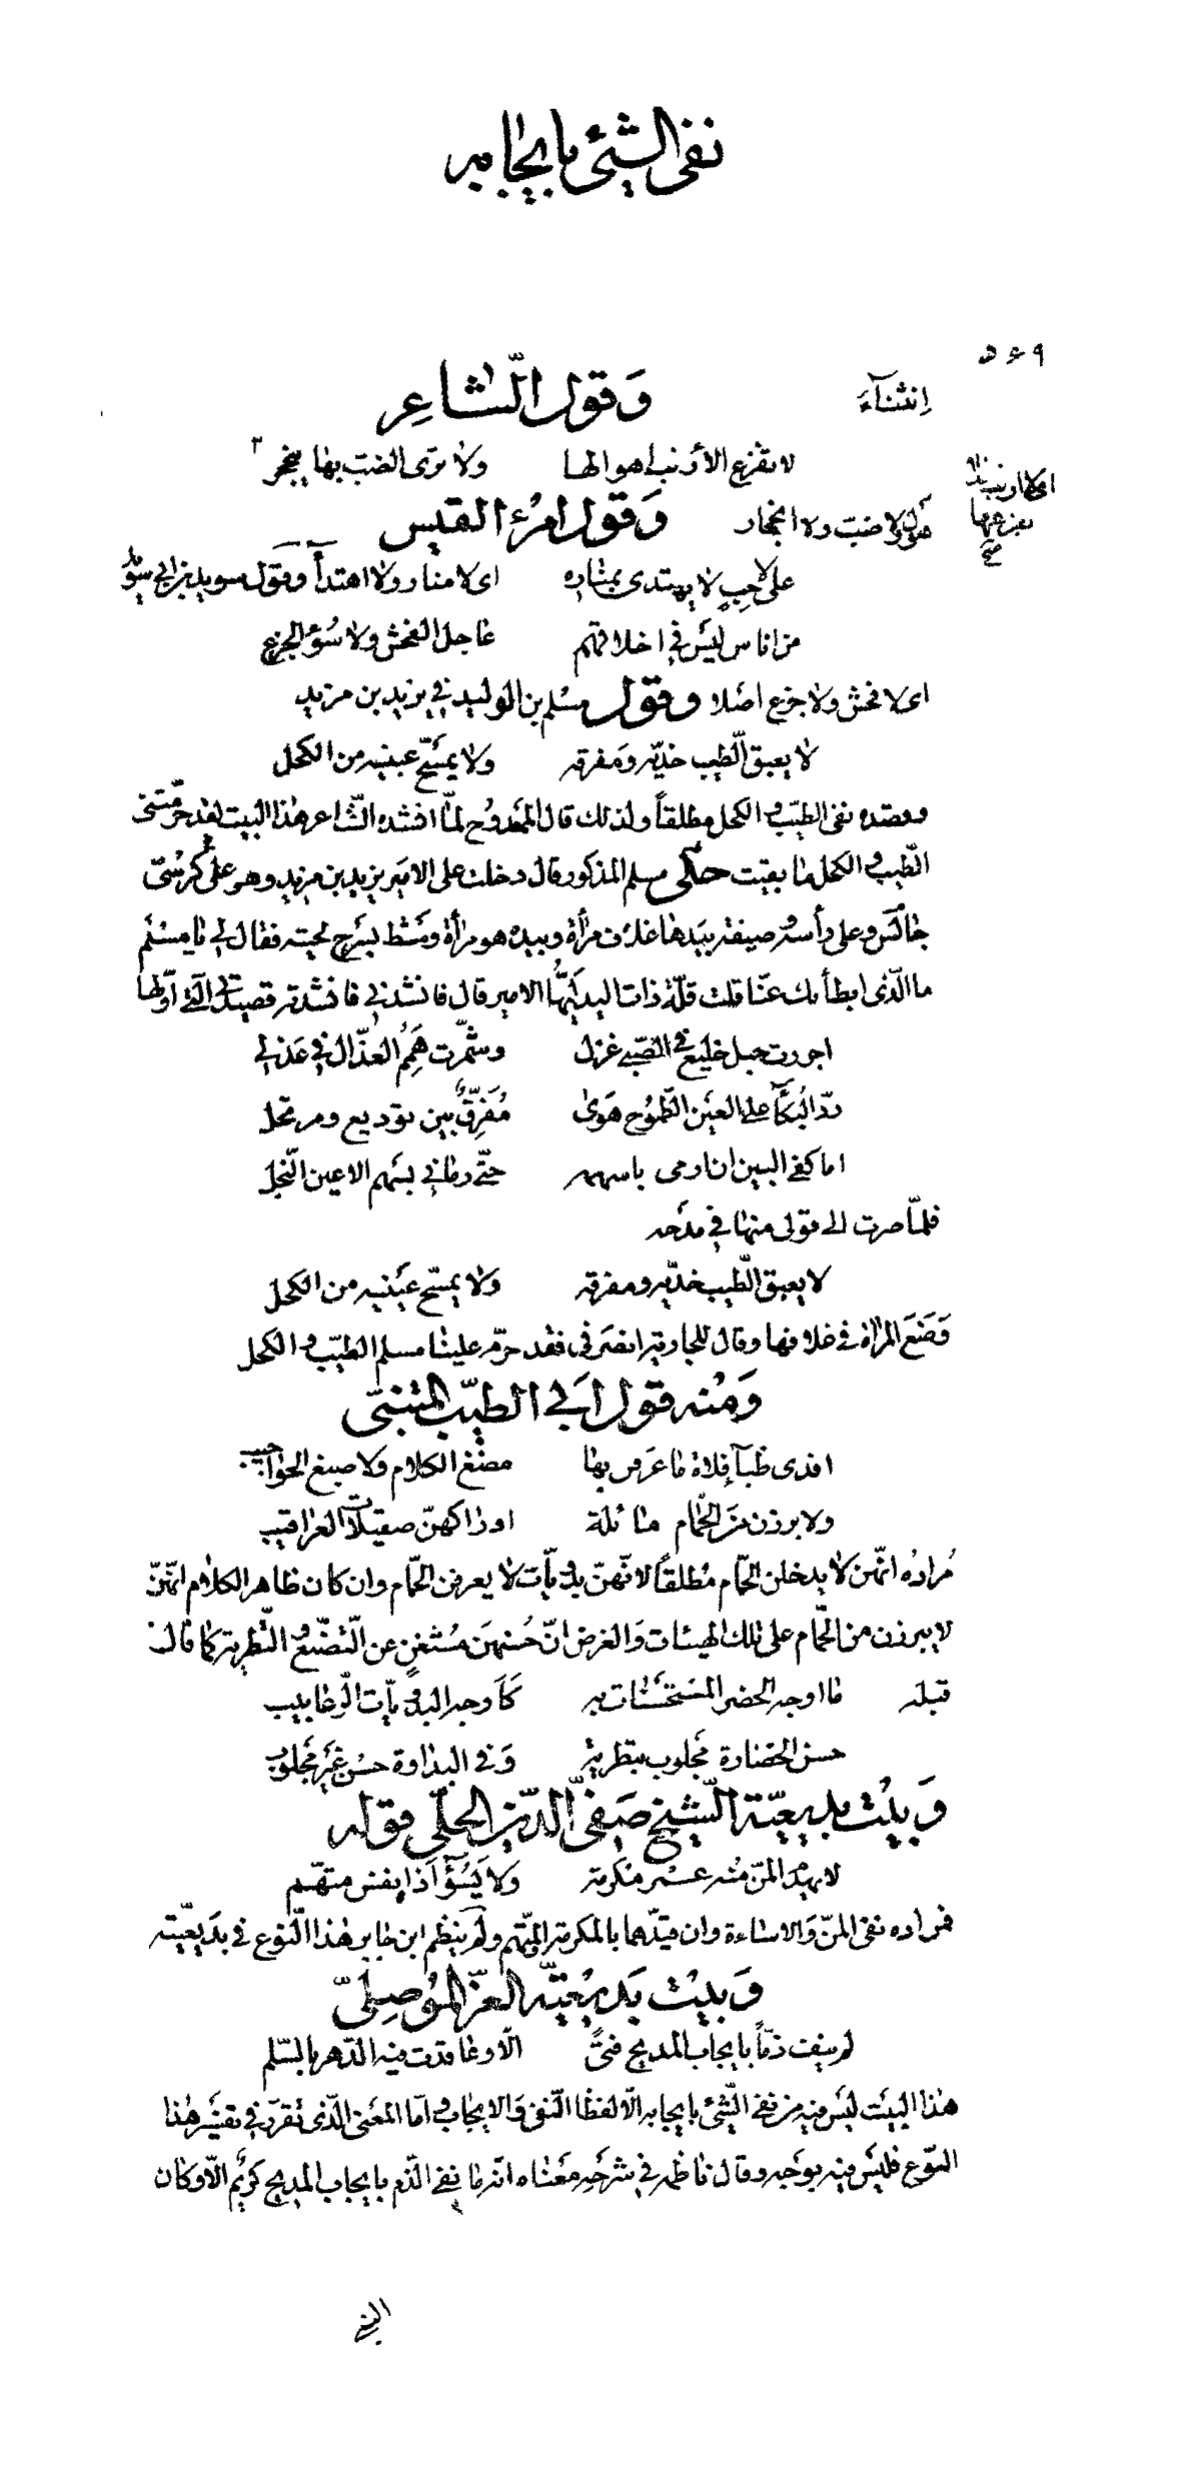 نفى الشيئ بايجابه
٥٤٩
انثناء وقول الشاعر
لا تفزع الأرنب اهوالها ولا ترى الضب بها ينجحر
اى لا ارنب
يفزعها
هولها
صح
ولا ضب ولا انجحار وقول امرئ القيس
على لاحب لا يهتدى بمناره اى لا منار ولا اهتدآء وقول سويد بن ابي
من اناس ليس في اخلاقهم عاجل الفحش ولا سوء الجزع
اى لا فحش ولا جزع اصلا وقول مسلم بن الوليد في يزيد بن مزيد
لا يعبق الطيب خديه ومفرقه ولا يمسح عينيه من الكحل
وقصده نفى الطيب والكحل مطلقاً ولذلك قال الممدوح لما انشده الشاعر هذا البيت لقد حرمتنى
الطيب والكحل ما بقيت حكى مسلم المذكور قال دخلت على الامير يزيد بن مزيد وهو على كرسى
جالس وعلى رأسه وصيفة بيدها غلاف مرأة وبيده هو مرأة ومشط يسرح لحيته فقال لي يا مسلم
ما الذى ابطأ بك عنا قلت قلة ذات اليد ايها الامير قال فانشدني فانشدته قصيدتي التي اولها
اجررت حبل خليع في الصبى غزل وشمرت همم العذال في عذلي
رد البكآء على العين الطموح هوى مفرق بين توديع ومرتحل
اما كفى البين ان ارمى باسهمه حتى رماني بسهم الاعين النجل
فلما صرت الى قولى منها في مدحه
لا يعبق الطيب خديه ومفرقه ولا يمسح عينيه من الكحل
وضع المرأة في غلافها وقال للجارية انصرفى فقد حرم علينا مسلم الطيب والكحل
ومنه قول ابي الطيب المتنبى
افدى ظبآء فلاة ما عرفن بها مضغ الكلام ولا صبغ الحواجيب
ولا برزن من الحمام مائلة اوراكهن صقيلات العراقيب
مراده انهن لا يدخلن الحمام مطلقاً لانهن بدويات لا يعرفن الحمام وان كان ظاهر الكلام انهن
لا يبرزن من الحمام على تلك الهيئات والغرض ان حسنهن مستغن عن التصنع والتطرية كما قال
قبله ما اوجه الحضر المستحسنات به كأوجه البدويات الرعابيب
حسن الحضارة مجلوب بتطرية وفى البداوة حسن غير مجلوب
وبيت بديعية الشيخ صفى الدين الحلى قوله
لا يهدم المن منه عمر مكرمة ولا يسوء اذاه نفس متهم
فمراده نفى المن والاساءة وان قيدهما بالمكرمة والمتهم ولم ينظم ابن جابر هذا النوع في بديعيته
وبيت بديعية العز الموصلى
لم ينف ذماً بايجاب المديح فتى الا وعاقدت فيه الدهر بالسلم
هذا البيت ليس فيه من نفى الشئ بايجابه الا لفظا النفى والايجاب واما المعنى الذى تقرر في تفسير هذا
النوع فليس فيه بوجه وقال ناظمه في شرحه معناه انه ما نفى الذم بايجاب المديح كريم الا وكان